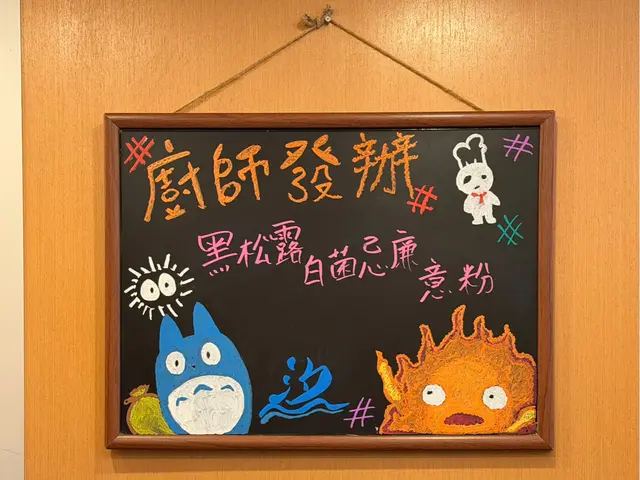 廚師發辦
黑松露
白菌忌廉
意粉
汐